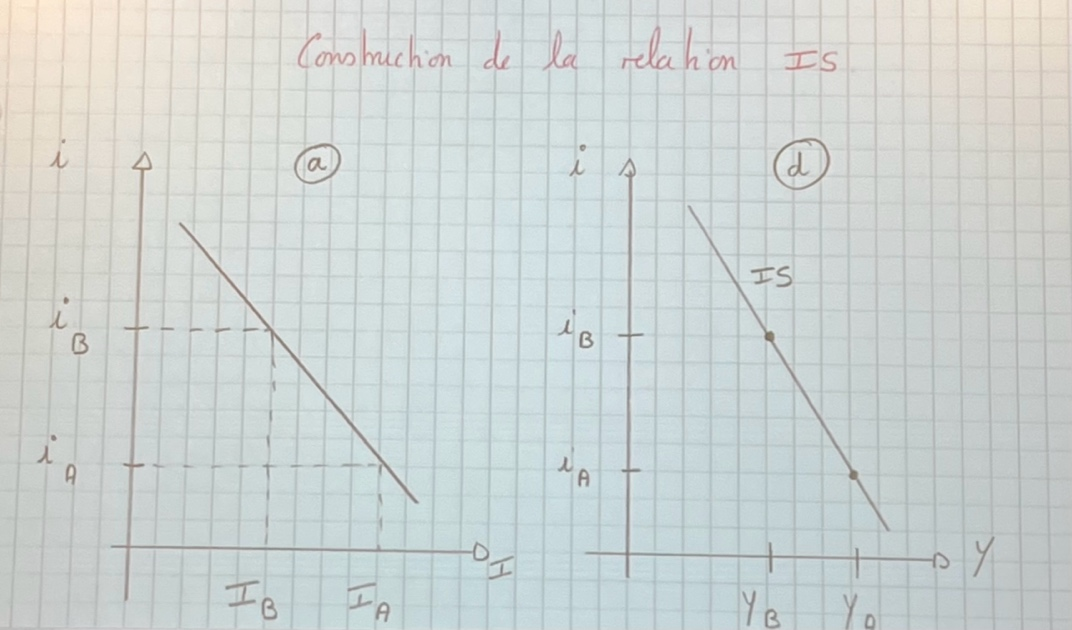 Construction de la relation IS
i
a
i_B
i_A
I_B I_A
I
i
d
IS
i_B
i_A
Y_B
Y